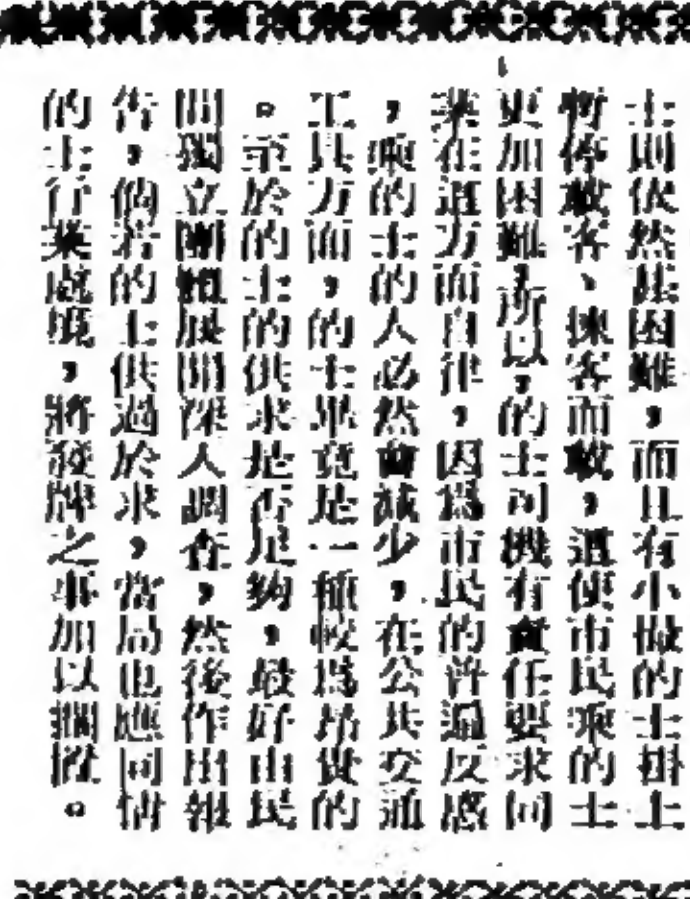 士則依然甚困難，而且有小做的士掛上
暫停載客、揀客而載，這使市民乘的士
更加困難，所以，的士司機有責任要求同
業在這方面自律，因為市民的普遍反感
，乘的士的人必然會減少，在公共交通
工具方面，的士畢竟是一種較為昂貴的
。至於的士的供求是否足夠，最好由民
間獨立團體展開深入調查，然後作出報
告，倘若的士供過於求，當局也應同情
的士行業處境，將發牌之事加以擱置。